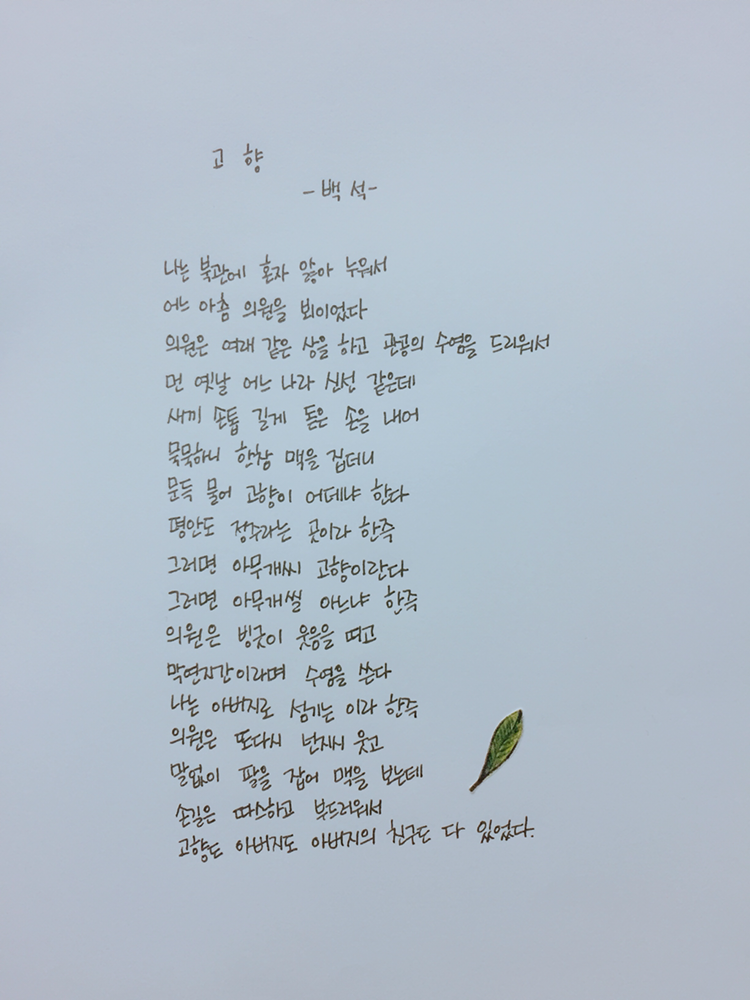 고 향
- 백 석 -
나는 북관에 혼자 앓아 누워서
어느 아츰 의원을 뵈이었다
의원은 여래 같은 상을 하고 관공의 수염을 드리워서
먼 옛날 어느 나라 신선 같은데
새끼 손톱 길게 돋은 손을 내어
묵묵하니 한참 맥을 집더니
문득 물어 고향이 어데냐 한다
평안도 정주라는 곳이라 한즉
그러면 아무개씨 고향이란다
그러면 아무개씰 아느냐 한즉
의원은 빙긋이 웃음을 띠고
막연지간이라며 수염을 쓴다
나는 아버지로 섬기는 이라 한즉
의원은 또다시 넌지시 웃고
말없이 팔을 잡어 맥을 보는데
손길은 따스하고 부드러워서
고향도 아버지도 아버지의 친구도 다 있었다.